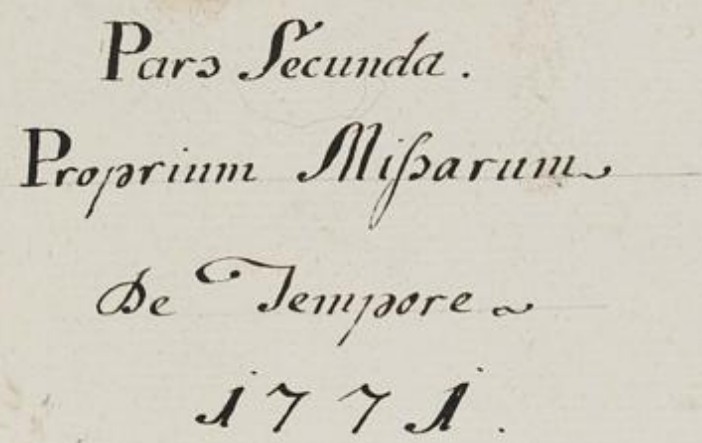 Pars Secunda.
Proprium Missarum
De Tempore
1771.